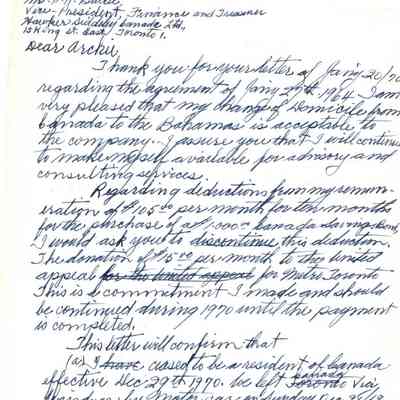 Vice-President, Finance and Treasurer
Hawker Siddeley Canada Ltd.,
15 King St. East, Toronto 1.
Dear Archie,
Thank you for your letter of Jan'y 26/70
regarding the agreement of Jan'y 27th, 1964. I am
very pleased that my change of Domicile from
Canada to the Bahamas is acceptable to
the company. I assure you that I will continue
to make myself available for advisory and
consulting services.
Regarding deductions from my remun-
eration of $105.00 per month for ten months
for the purchase of a $1,000.00 Canada Savings Bond,
I would ask you to discontinue this deduction.
The donation of $15.00 per month to the united
appeal for the united appeal for Metro Toronto
This is a commitment I made and should
be continued during 1970 until the payment
is completed.
This letter will confirm that
(a) I have ceased to be a resident of Canada
effective Dec 29th 1970. We left Toronto Canada via